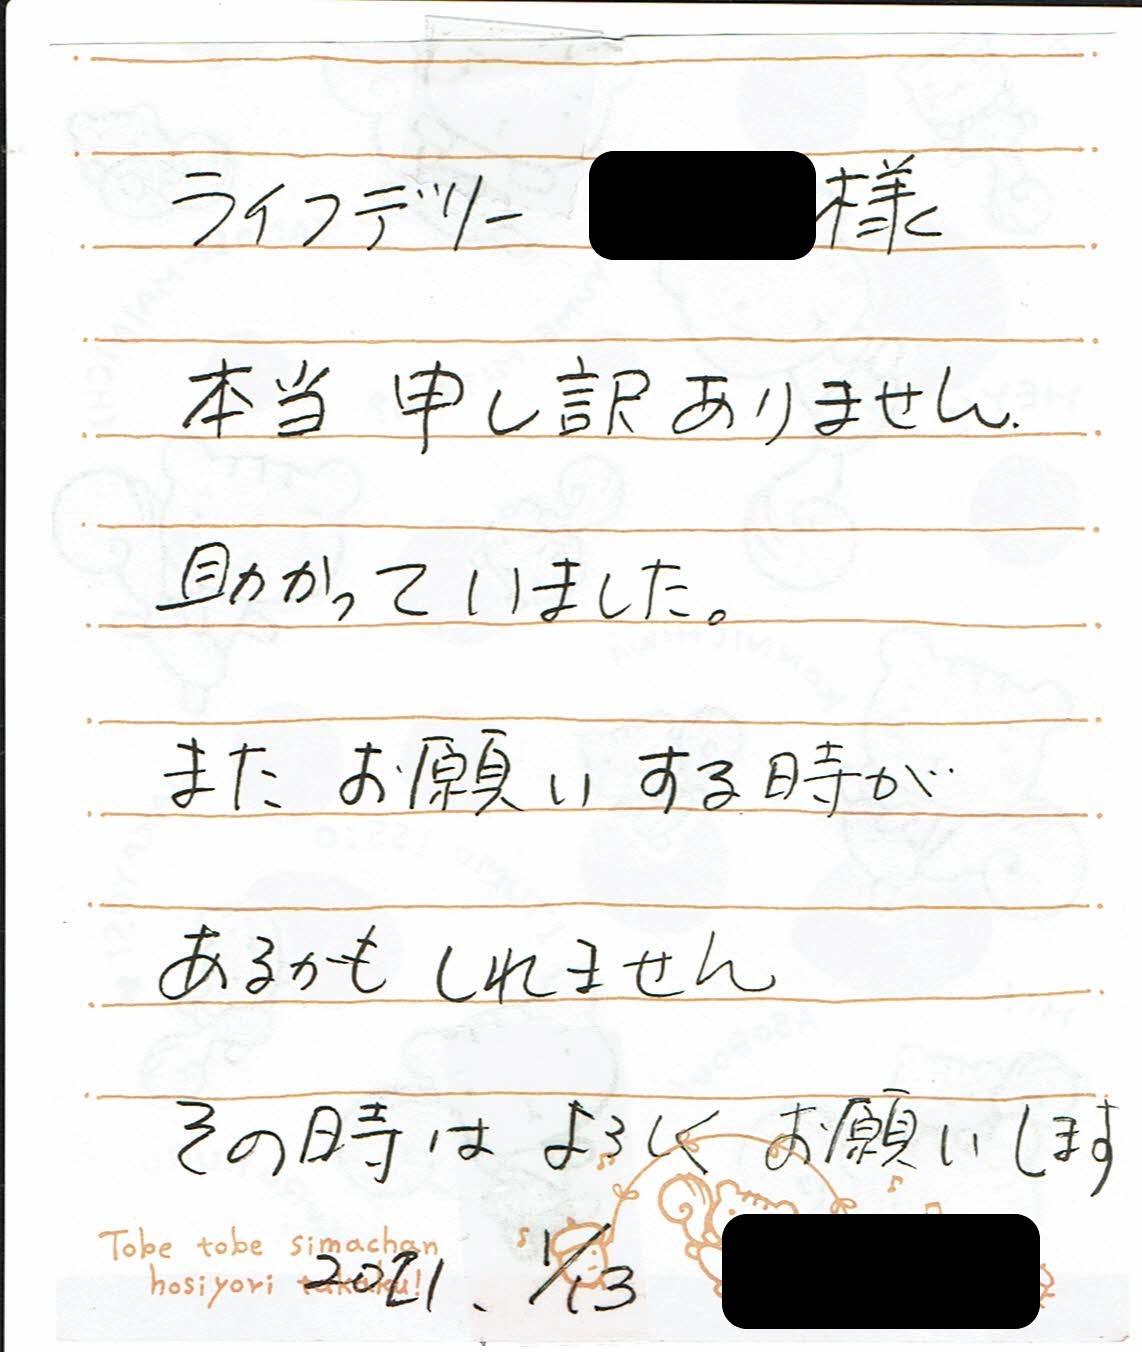 ライフデリー 様
本当 申し訳ありません.
助かっていました。
また お願い する時が
あるかも しれません
その時は よろしく お願いします
Tobe tobe simachan
hosiyori takaku!
2021. 1/13